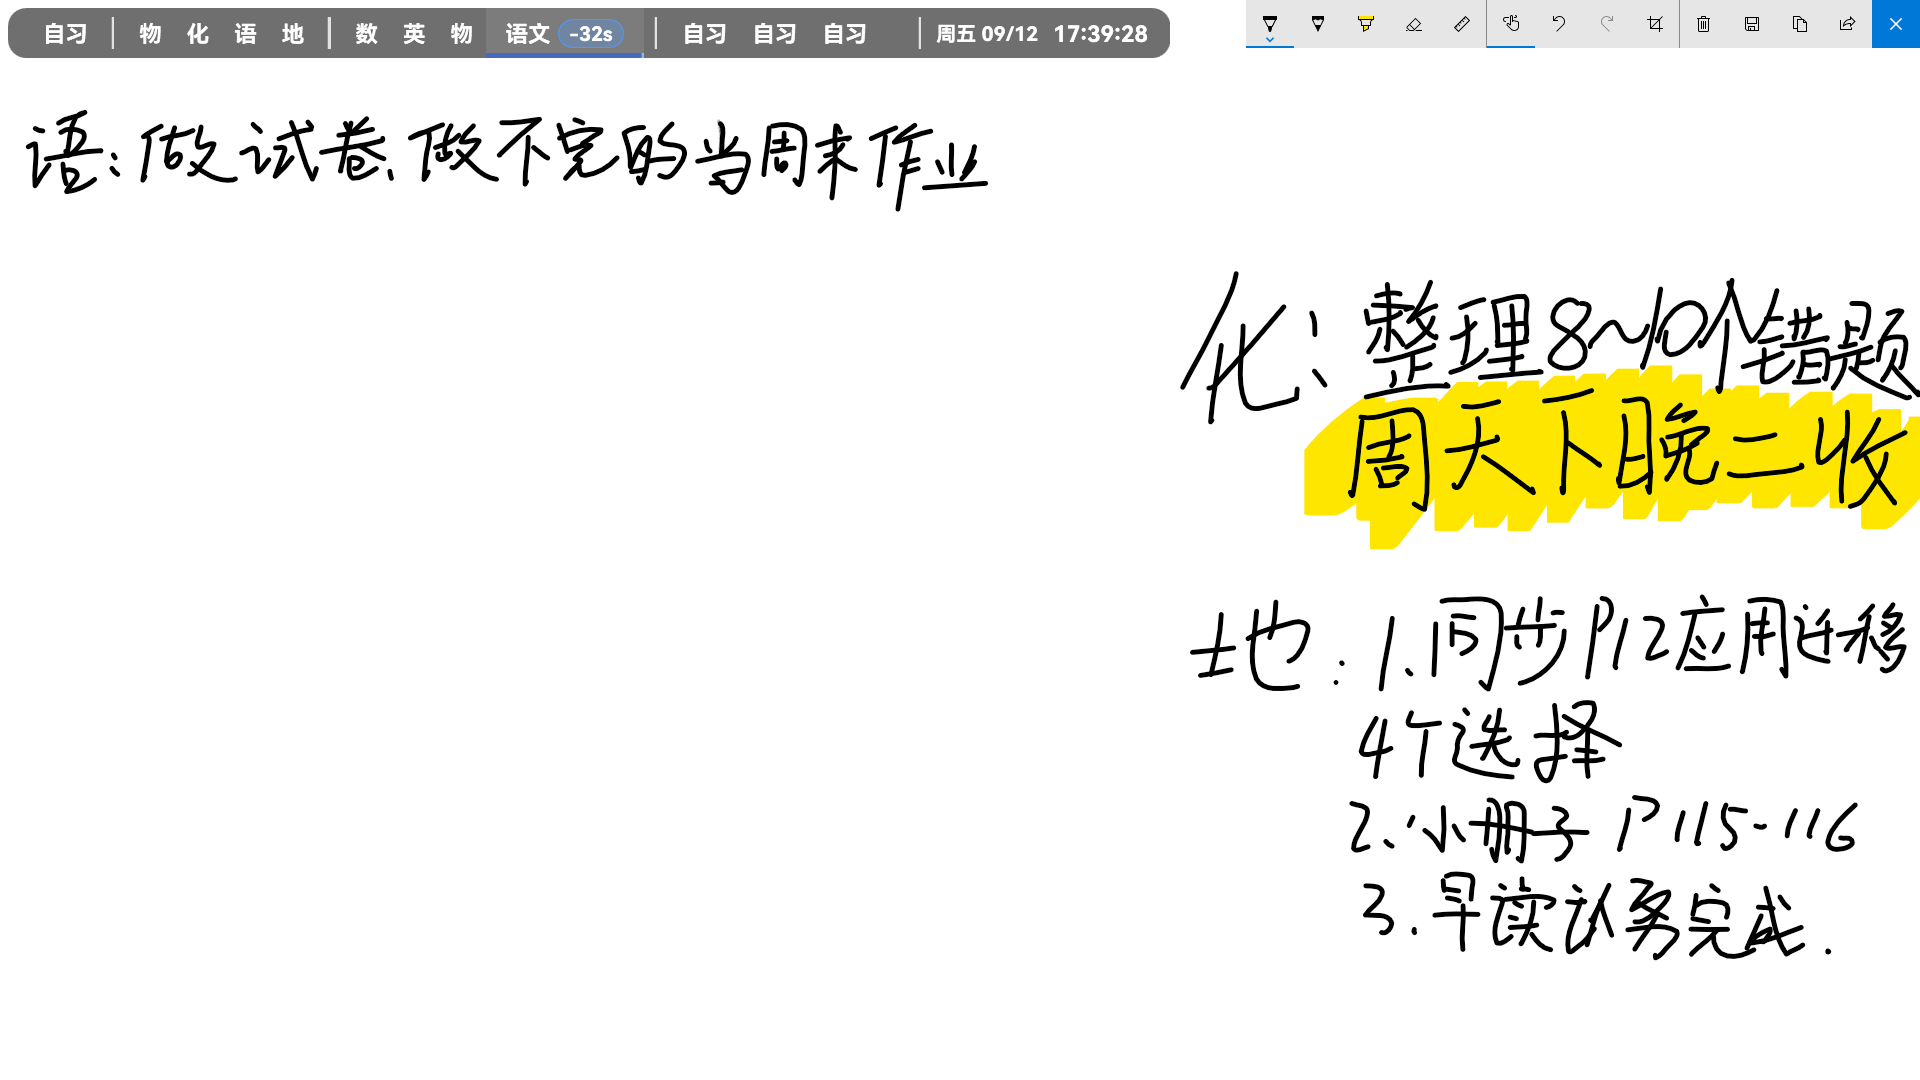 自习 | 物 化 语 地 | 数 英 物 语文 -32s | 自习 自习 自习 | 周五 09/12 17:39:28
语:做试卷、做不完的当周末作业
化:整理8~10个错题
周天下晚二收
地:1.同步P12应用迁移
4个选择
2.小册子 P115-116
3.早读认务完成.